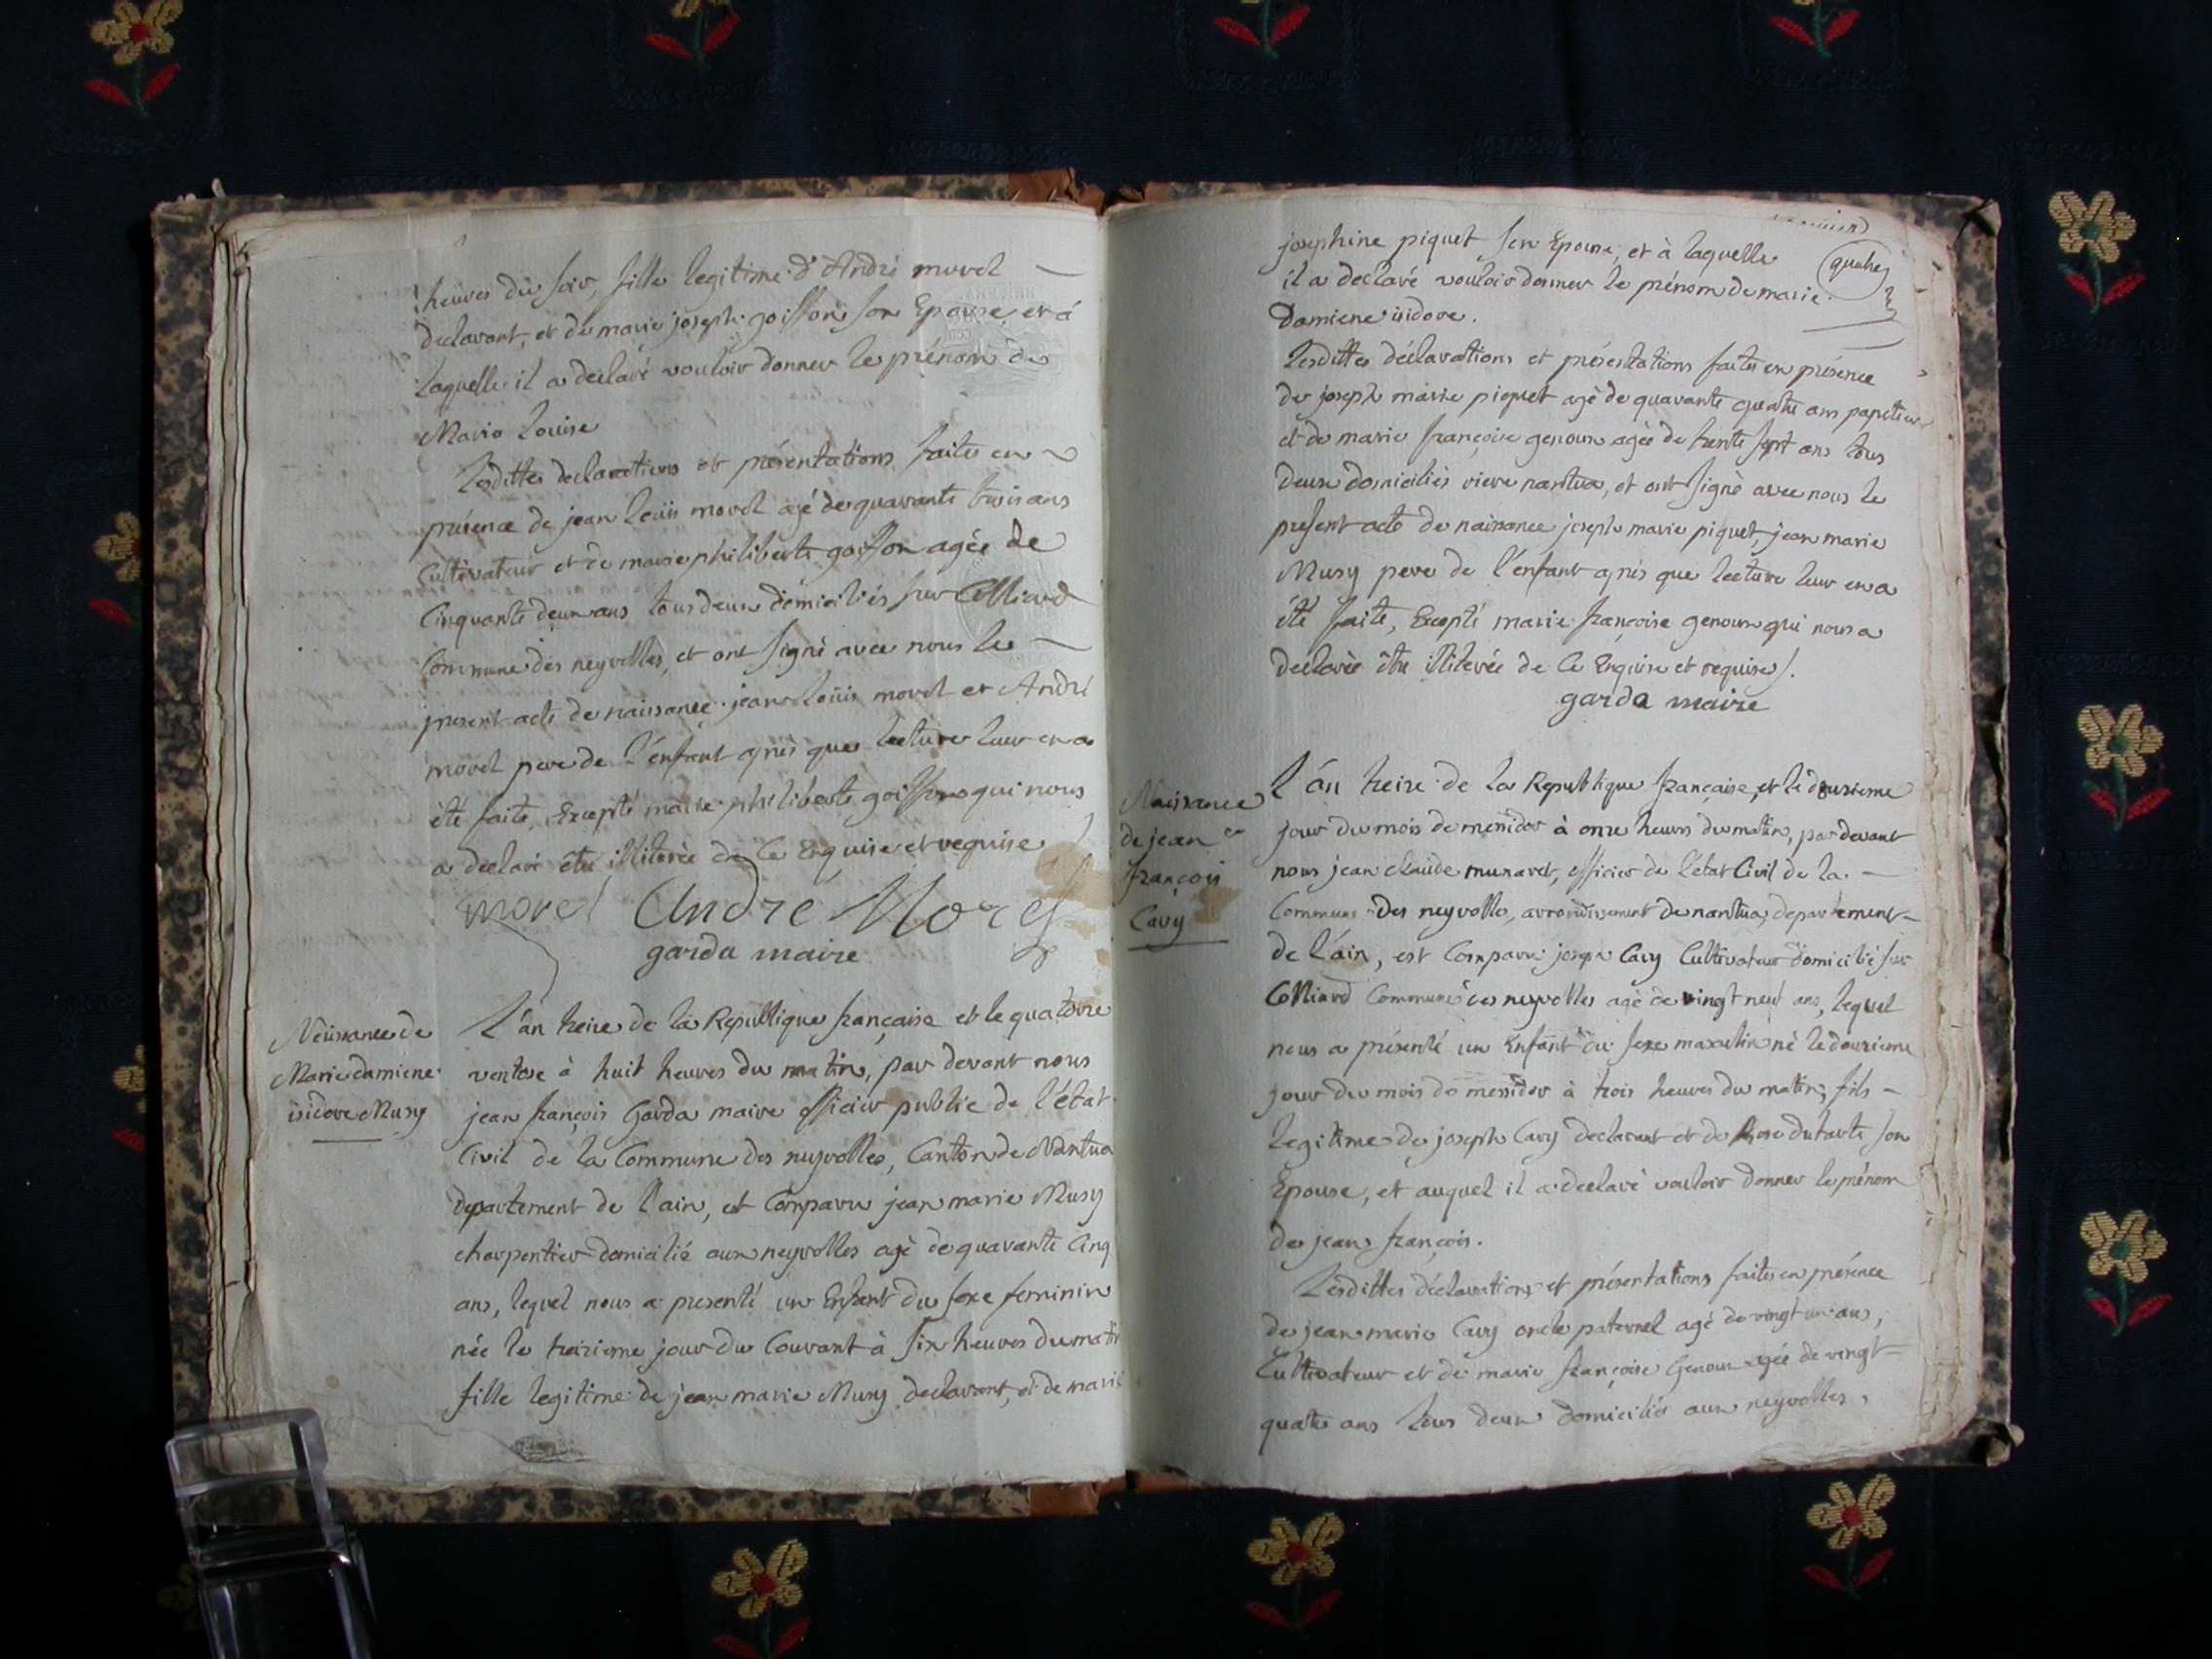 heures du soir, fille legitime d'André morel
declarant, et de marie joseph goiffon son Epouse, et á
laquelle il a declaré vouloir donner le prénom de
Marie Louise
Lesdittes declarations et présentations faites en
présence de jean Loüis morel agé de quarante trois ans
Cultivateur et de marie philiberte goiffon agée de
Cinquante deux ans tous deux domiciliés sur Colliard
Commune des neyrolles, et ont signé avec nous le
present acte de naissance jean Loüis morel et André
morel pere de l'énfant après que lecture leur en a
été faite, Excepté marie philiberte goiffon qui nous
a declaré être illiterée de ce Enquise et requise
morel André Morel
garda maire
Naissance de
Marie damiene
isidore Musy
L'án treize de la Republique française et le quatorze
ventose à huit heures du matin, par devant nous
jean françois Garda maire officier public de l'état
Civil de la Commune des neyrolles, Canton de Nantua
departement de l'ain, est Comparu jean marie Musy
charpentier domicilié aux neyrolles agé de quarante Cinq
ans, lequel nous a presenté un Enfant du sexe feminin
née le treizieme jour du Courant à six heures du matin
fille legitime de jean marie Musy declarant, et de marie
josephine piquet son Epouse, et à laquelle
quatre
il a declaré vouloir donner le prénom de marie
Damiene isidore.
Lesdittes déclarations et présentations faites en présence
de joseph marie piquet agé de quarante quatre ans papetier
et de marie françoise genoux agée de trente sept ans tous
deux domiciliés riere nantua, et ont signé avec nous le
present acte de naissance joseph marie piquet, jean marie
Musy pere de l'énfant après que lecture leur en a
été faite, Excepté marie françoise genoux qui nous a
declarée être illiterée de ce Enquise et requise.
garda maire
Naissance
de jean
françois
Cavy
L'án treize de la Republique française, et le douzieme
jour du mois de messidor à onze heures du matin, par devant
nous jean claude munaret, officier de l'état Civil de la
Commune des neyrolles, arrondissement de nantua, departement
de l'ain, est Comparu joseph Cavy Cultivateur domicilié sur
Colliard Commune des neyrolles agé de vingt neuf ans, lequel
nous a présenté un Enfant du sexe masculin né le douzieme
jour du mois de messidor à trois heures du matin, fils
legitime de joseph Cavy declarant et de Rose dutarte son
Epouse, et auquel il a declaré vouloir donner le prénom
de jean françois.
Lesdittes déclarations et présentations faites en présence
de jean marie Cavy oncle paternel agé de vingt un ans,
Cultivateur et de marie françoise Genoux agée de vingt
quatre ans tous deux domiciliés aux neyrolles,